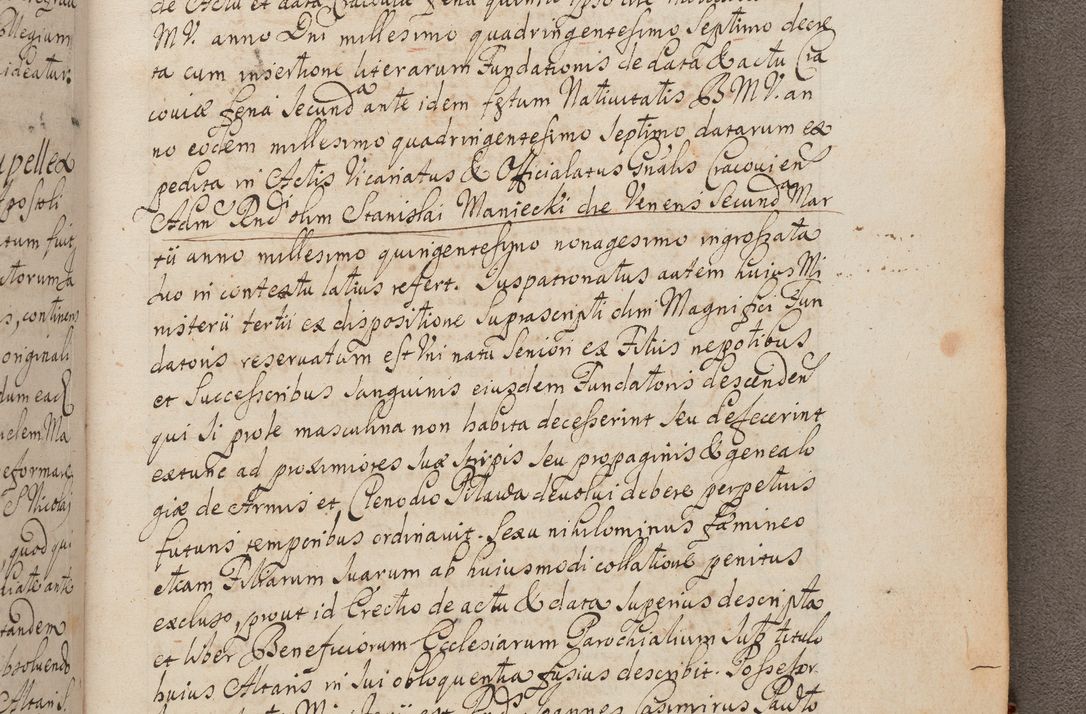 de Actu et data Cracoviæ
M V. anno Dni millesimo quadringentesimo septimo decre
ta cum insertione literarum Fundationis de data & actu Cra
coviæ feria secunda ante idem festum Nativitatis B M V. an
no eodem millesimo quadringentesimo septimo datarum ex
pedita in Actis Vicariatus & Officialatus Gnalis Cracovien
Adm Rndi olim Stanislai Maniecki die Veneris secunda Mar
tii anno millesimo quingentesimo nonagesimo ingrossata
suo in contextu latius refert. Juspatronatus autem huius Mi
nisterii tertii ex dispositione suprascripti olim Magnifici Fun
datoris reservatum est Uni natu Seniori ex Filiis nepotibus
et Successoribus sanguinis eiusdem Fundatoris descenden
qui si prole masculina non habita decesserint seu defecerint
extunc ad proximiores suæ stirpis seu propaginis & genealo
giæ de Armis et Clenodio Pilawa devolui debere perpetuis
futuris temporibus ordinavit. Sexu nihilominus fæmineo
etiam Filiarum suarum ab huiusmodi collatione penitus
excluso, prout id Erectio de actu & data superius descripta
et liber Beneficiorum Ecclesiarum Parochialium sub titulo
huius Altaris in sui obloquentia fusius describit. Possessor
Joannes Casimirus
ollegium
ideatur.
apellæ
Apostoli
tum fuit
atorum
s, continens
originali
dum eac
uelem Ma
eformare
S Nicolai
quod qui
diate ante
tandem
bsoluendo
Altaris S.